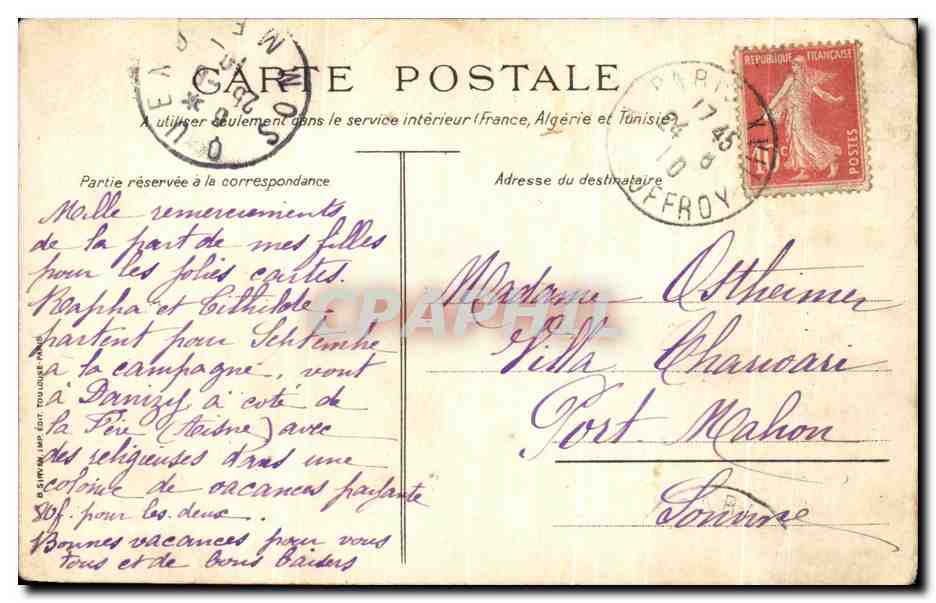 CARTE POSTALE
A utiliser seulement dans le service intérieur (France, Algérie et Tunisie
Partie réservée à la correspondance
Mille remerciements
de la part de mes filles
pour les jolies cartes.
Rapha et Clthilde
partent pour Septembre
à la campagne, vont
à Danizy à coté de
la Fère (Aisne) avec
des religieuses dans une
colonie de vacances payante
80f. pour les deux.
Bonnes vacances pour vous
tous et de bons baisers
B. SIRVEN IMP. ÉDIT. TOULOUSE-PARIS
Adresse du destinataire
Madame Ostheimer
Villa Charivari
Port Mahon
Somme
REPUBLIQUE FRANÇAISE
10 c.
POSTES
PARIS
17 45
24 8
10
JOFFROY
QUEND
SOMME
25 8
CPAPHIL